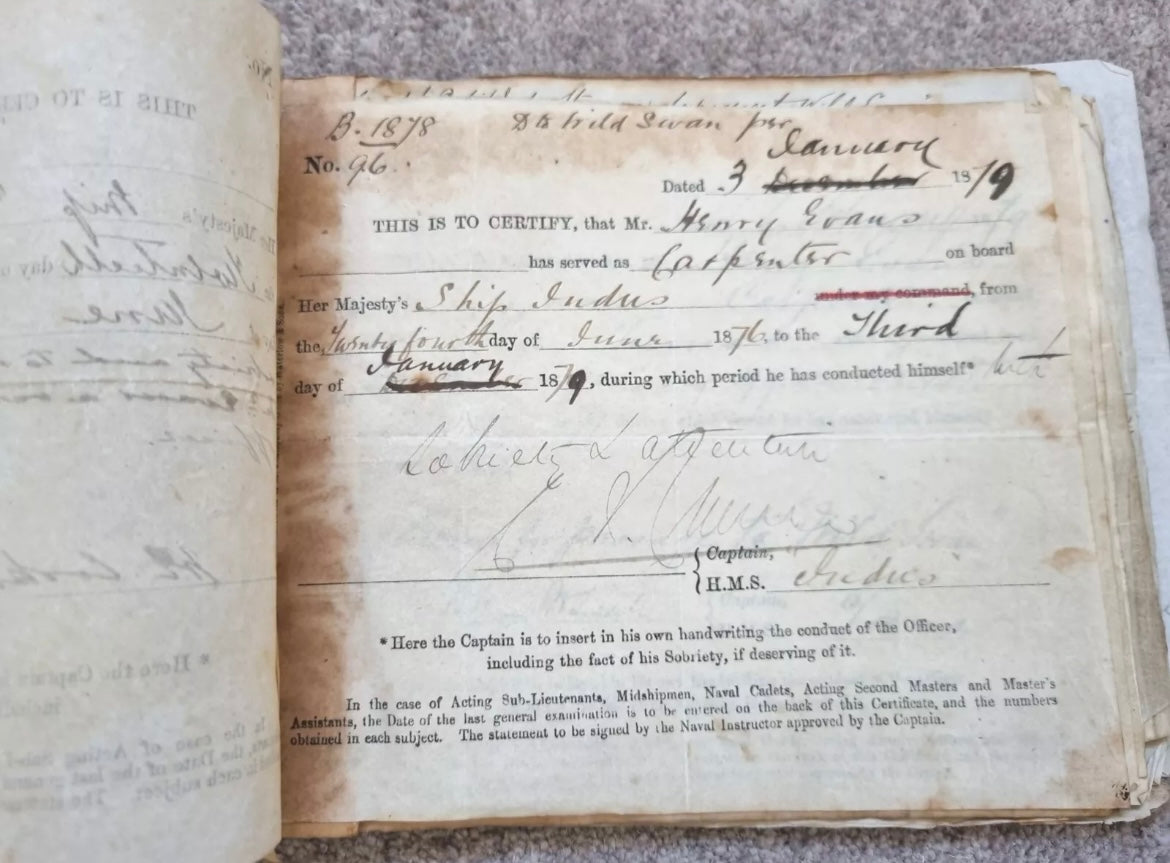 B. 1878 Wild Swan
No. 96.
January
Dated 3 December 1879
THIS IS TO CERTIFY, that Mr. Henry Evans
has served as Carpenter on board
Her Majesty's Ship Indus under my command, from
the Twenty fourth day of June 1876, to the Third
January
day of December 1879, during which period he has conducted himself* with
Sobriety & attention
Captain,
H.M.S. Indus
* Here the Captain is to insert in his own handwriting the conduct of the Officer,
including the fact of his Sobriety, if deserving of it.
In the case of Acting Sub-Lieutenants, Midshipmen, Naval Cadets, Acting Second Masters and Master's
Assistants, the Date of the last general examination is to be entered on the back of this Certificate, and the numbers
obtained in each subject. The statement to be signed by the Naval Instructor approved by the Captain.